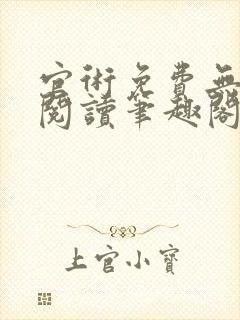 官術免費無
閱讀筆趣閣
上官小寶